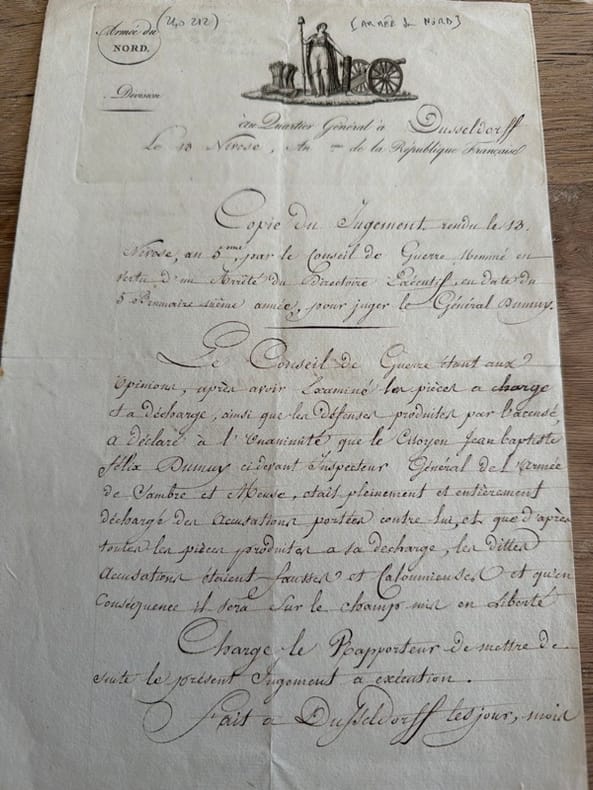 Armée du
NORD.
(240 212)
[ARMÉE du NORD]
Division
Au Quartier Général à Dusseldorff
Le 13 Nivose, An de la République Française
Copie du Jugement rendu le 13.
Nivose, an 5me, par le Conseil de Guerre Nommé en
vertu d'un Arrêté du Directoire Exécutif, en date du
5 Brumaire même année, pour juger le Général Dumuy.
Le Conseil de Guerre étant aux
Opinions, après avoir Examiné les pièces a charge
et a décharge, ainsi que les défenses produites par l'accusé,
a déclaré à l'Unanimité que le Citoyen Jean baptiste
félix Dumuy cidevant Inspecteur Général de l'Armée
de Sambre et Meuse, était pleinement et entièrement
déchargé des accusations portées contre lui, et que d'après
toutes les pièces produites a sa decharge, les dittes
Accusations étaient fausses et Calomnieuses et qu'en
Conséquence il sera sur le champ mis en Liberté
Charge le Rapporteur de mettre de
suite le présent Jugement a exécution.
Fait a Dusseldorff les jour, mois